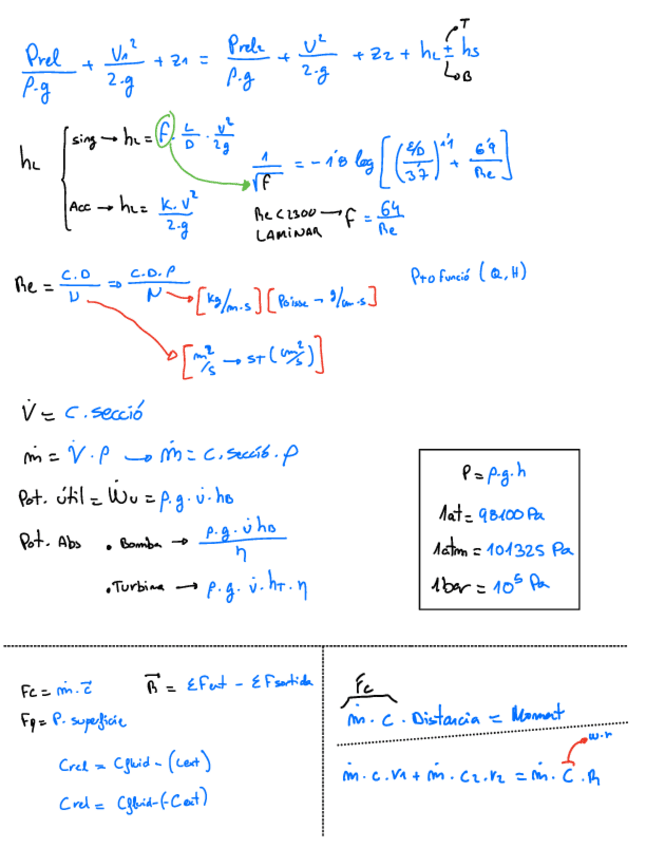 Prel/ρ.g + V1²/2.g + z1 = Prel2/ρ.g + V²/2.g + z2 + hL ± hs
T
B
hL
sing → hL = f . L/D . V²/2g
1/√f = -1'8 log [ ((ε/D)/3'7)^1'1 + 6'9/Re ]
Acc → hL = K.V²/2.g
Re < 2300 → f = 64/Re
LAMINAR
Re = C.D/ν ⇒ C.D.ρ/N → [kg/m.s] [Poisse → g/cm.s]
Pto Funció (Q, H)
[m²/s → ST (cm²/s)]
V̇ = C.secció
ṁ = V̇.ρ → ṁ = C.secció.ρ
Pot. útil = Ẇu = ρ.g.v̇.hB
Pot. Abs . Bomba → ρ.g.v̇.hB/η
.Turbina → ρ.g.v̇.hT.η
P = ρ.g.h
1at = 98100 Pa
1atm = 101325 Pa
1bar = 10⁵ Pa
Fc = ṁ.c⃗
R⃗ = ΣFent - ΣFsortida
Fp = P. superficie
Crel = Cfluid - (Cext)
Crel = Cfluid-(-Cext)
Fc
ṁ . c . Distancia = Moment
w.r
ṁ.c.r1 + ṁ.c2.r2 = ṁ.C.R